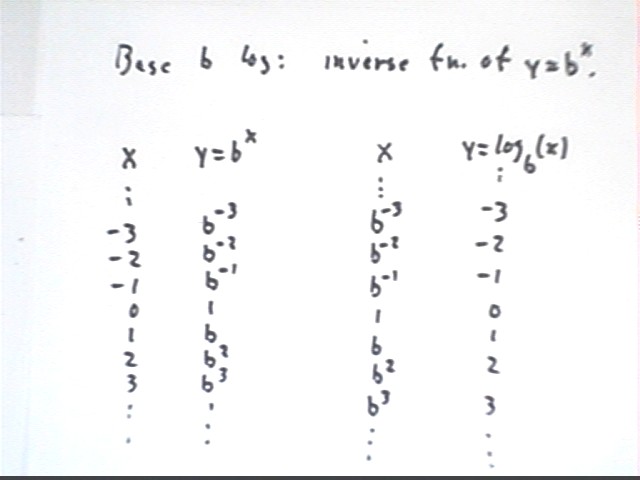 Base b log: inverse fn. of y=b^x.
x y=b^x x y=log_b(x)
⋮ ⋮ ⋮
-3 b^-3 b^-3 -3
-2 b^-2 b^-2 -2
-1 b^-1 b^-1 -1
0 1 1 0
1 b b 1
2 b^2 b^2 2
3 b^3 b^3 3
⋮ ⋮ ⋮ ⋮